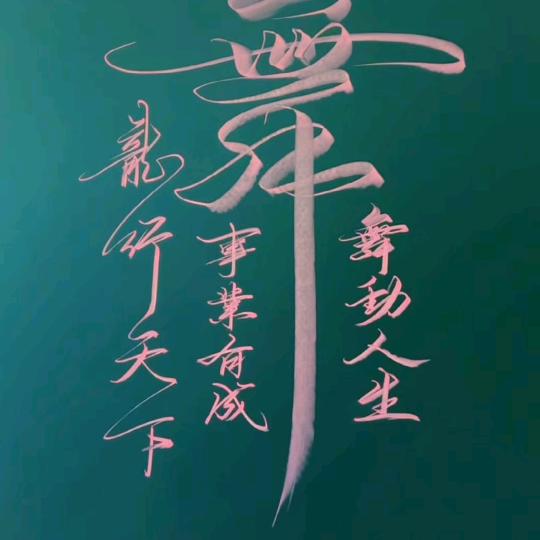 舞
舞動人生
事業有成
龍行天下